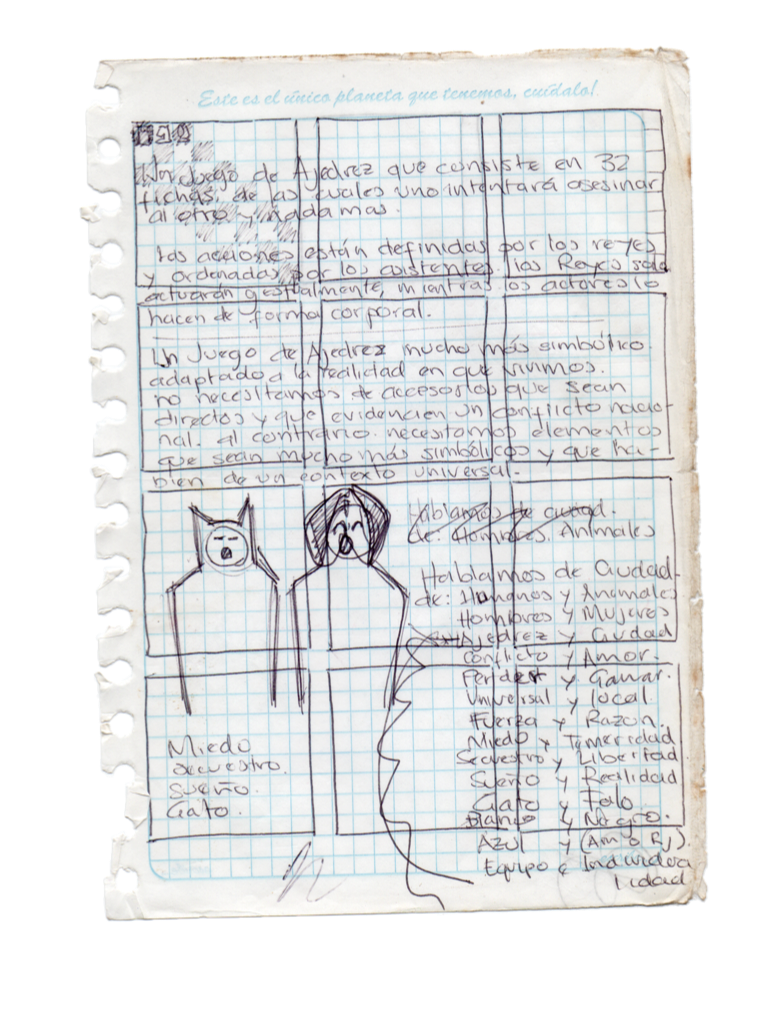 Este es el único planeta que tenemos, cuídalo!
Un Juego de Ajedrez que consiste en 32
fichas, de las cuales uno intentará asesinar
al otro y nada mas.
Las acciones están definidas por los reyes
y ordenadas por los asistentes. Los Reyes solo
actuarán gestualmente, mientras los actores lo
hacen de forma corporal.
Un Juego de Ajedrez mucho más simbólico.
adaptado a la realidad en que vivimos.
no necesitamos de accesorios que sean
directos y que evidencien un conflicto nacio-
nal. al contrario. necesitamos elementos
que sean mucho más simbólicos y que ha-
blen de un contexto universal.
Hablamos de ciudad.
de: Hombres, Animales
Hablamos de Ciudad-
de: Humanos y Animales
Hombres y Mujeres
Ajedrez y Ciudad
Conflicto y Amor.
Perder y Ganar.
Universal y local.
Fuerza y Razon.
Miedo y Temeridad
Secuestro y Libertad.
Sueño y Realidad
Gato y Falo.
Blanco y Negro.
Azul y (Am o Rj).
Equipo e Individua
lidad
Miedo
Secuestro.
Sueño.
Gato.